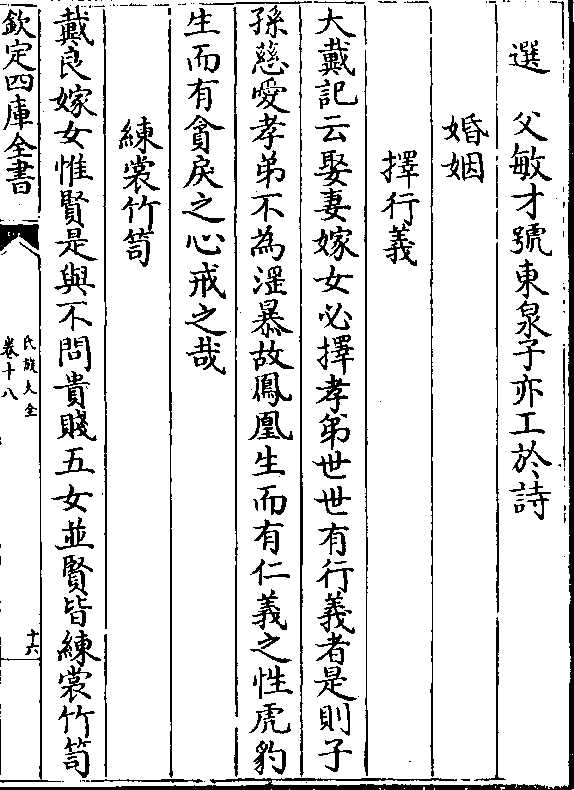 選　父敏才號東泉子亦工於詩
婚姻
擇行義
大戴記云娶妻嫁女必擇孝弟世世有行義者是則子
孫慈愛孝弟不為滛暴故鳳凰生而有仁義之性虎豹
生而有貪戾之心戒之哉
練裳竹笥
戴良嫁女惟賢是與不問貴賤五女並賢皆練裳竹笥
欽定四庫全書
氏族大全
卷十八
十六